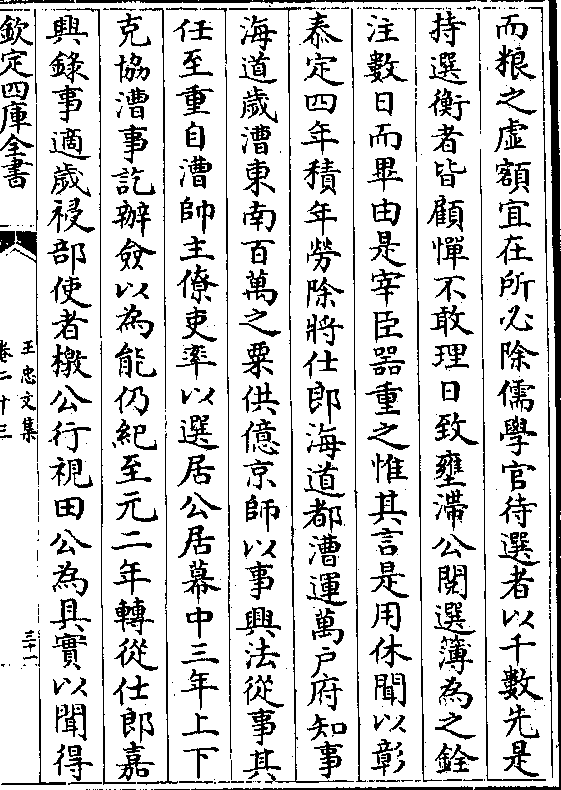 而粮之虚額宜在所必除儒學官待選者以千數先是
持選衡者皆顧憚不敢理日致壅滯公閱選簿為之銓
注數日而畢由是宰臣器重之惟其言是用休聞以彰
泰定四年積年勞除將仕郎海道都漕運萬户府知事
海道歲漕東南百萬之粟供億京師以事興法從事其
任至重自漕帥主僚吏率以選居公居幕中三年上下
克協漕事訖辦僉以為能仍紀至元二年轉從仕郎嘉
興錄事適歲祲部使者檄公行視田公為具實以聞得
欽定四庫全書
王忠文集
卷二十三
三十一